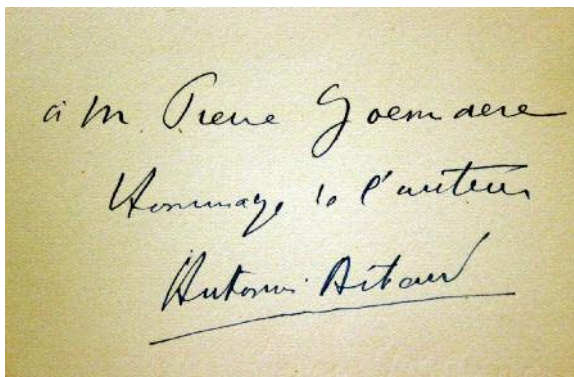 à M. Pierre Goemaere
Hommage de l'auteur
Antonin Artaud